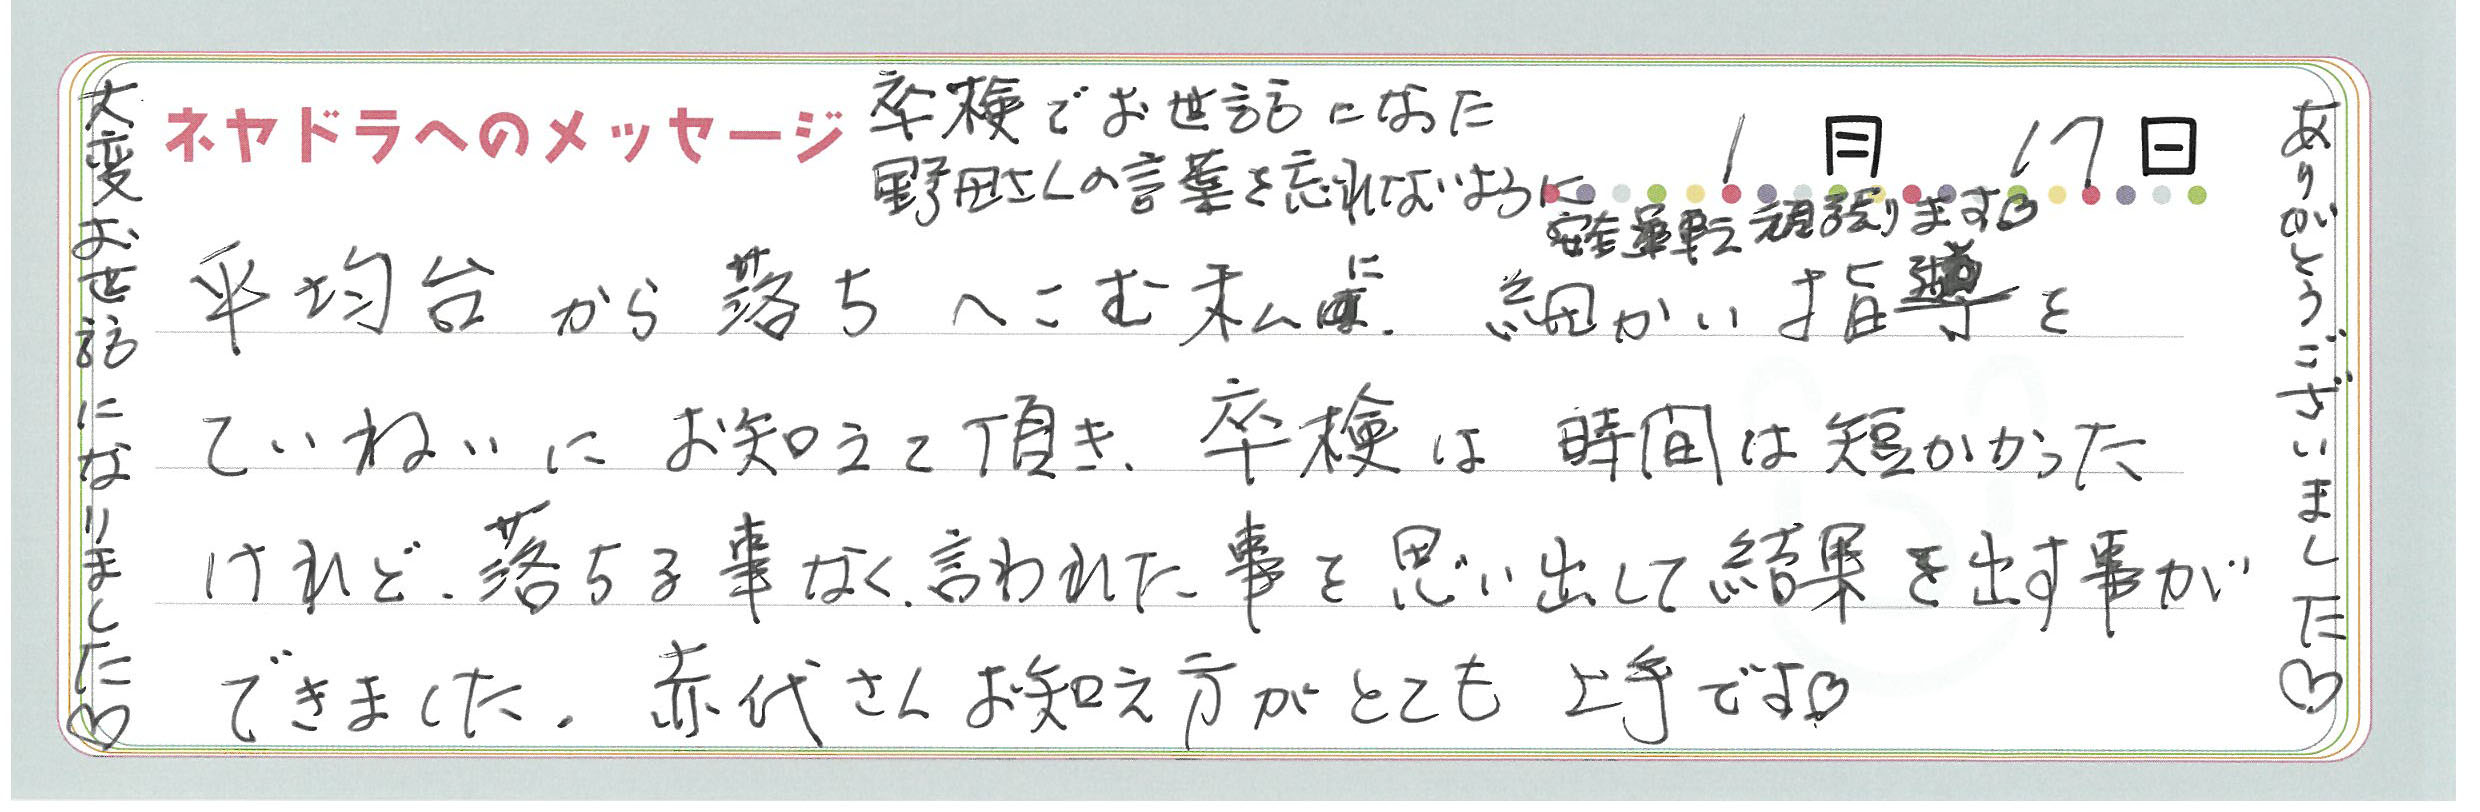 ネヤドラへのメッセージ
1月 17日
卒検でお世話になった
野田さんの言葉を忘れないように
安全運転頑張ります♡
平均台から落ちへこむ私に 細かい指導を
ていねいにお知えて頂き、卒検は時間は短かかった
けれど、落ちる事なく、言われた事を思い出して結果を出す事が
できました。赤代さんお知え方がとても上手です♡
大変お世話になりました♡
ありがとうございました♡